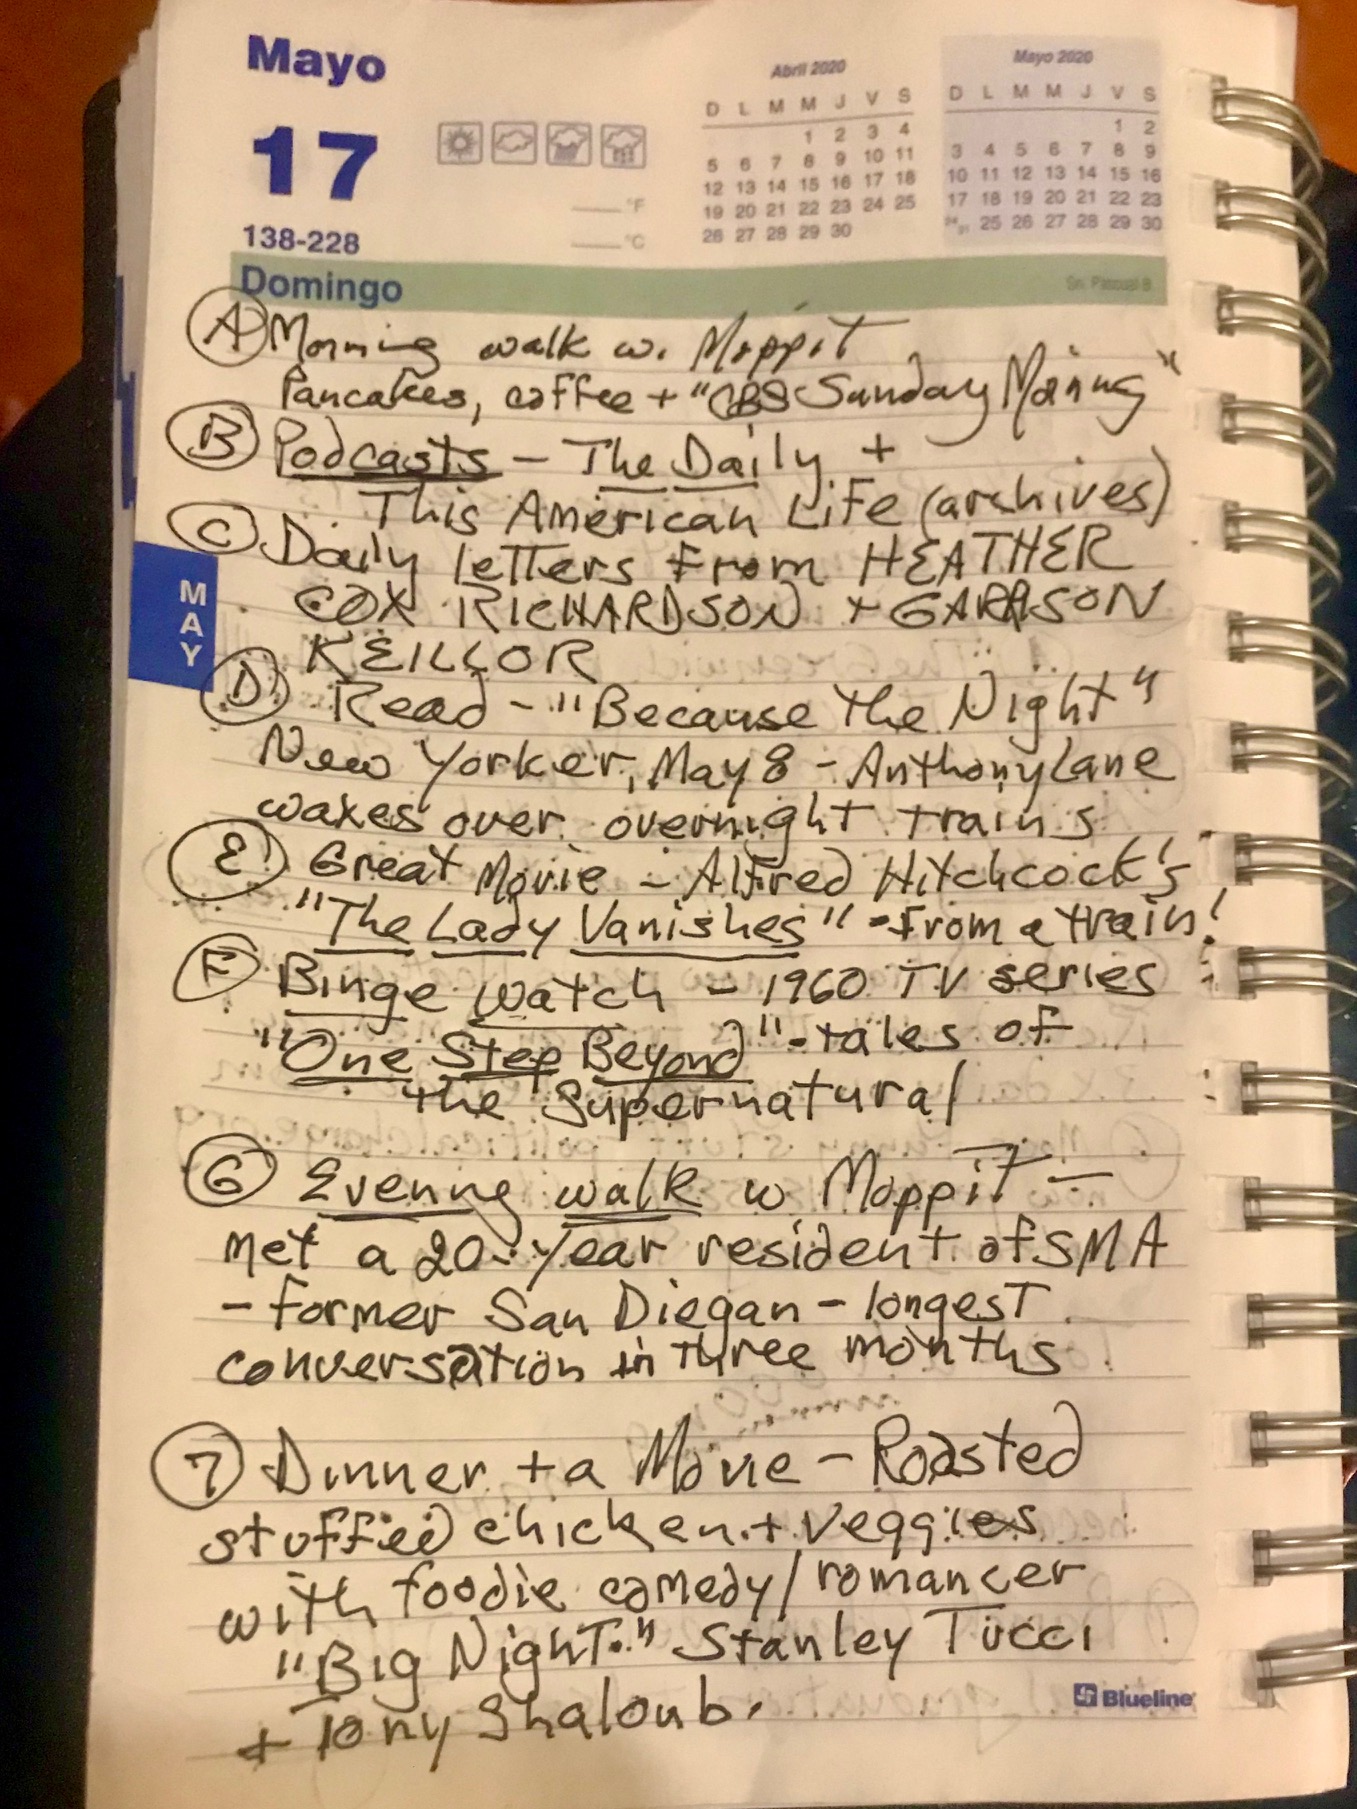 Mayo
17
138-228
°F
°C
Abril 2020
D L M M J V S
1 2 3 4
5 6 7 8 9 10 11
12 13 14 15 16 17 18
19 20 21 22 23 24 25
26 27 28 29 30
Mayo 2020
D L M M J V S
1 2
3 4 5 6 7 8 9
10 11 12 13 14 15 16
17 18 19 20 21 22 23
24/31 25 26 27 28 29 30
Domingo
Sn. Pascual B.
MAY
A Morning walk w. Moppit
Pancakes, coffee + "CBS Sunday Morning"
B Podcasts - The Daily +
This American Life (archives)
C Daily letters from HEATHER
COX RICHARDSON + GARRISON
KEILLOR
D Read - "Because the Night"
New Yorker, May 8 - Anthony Lane
waxes over overnight trains
E Great Movie - Alfred Hitchcock's
"The Lady Vanishes" - from a train!
F Binge watch - 1960 TV series
"One Step Beyond" - tales of
the supernatural
G Evening walk w Moppit -
met a 20-year resident of SMA
- former San Diegan - longest
conversation in three months
7 Dinner + a Movie - Roasted
stuffed chicken + veggies
with foodie comedy/romancer
"Big Night." Stanley Tucci
+ Tony Shaloub.
Blueline